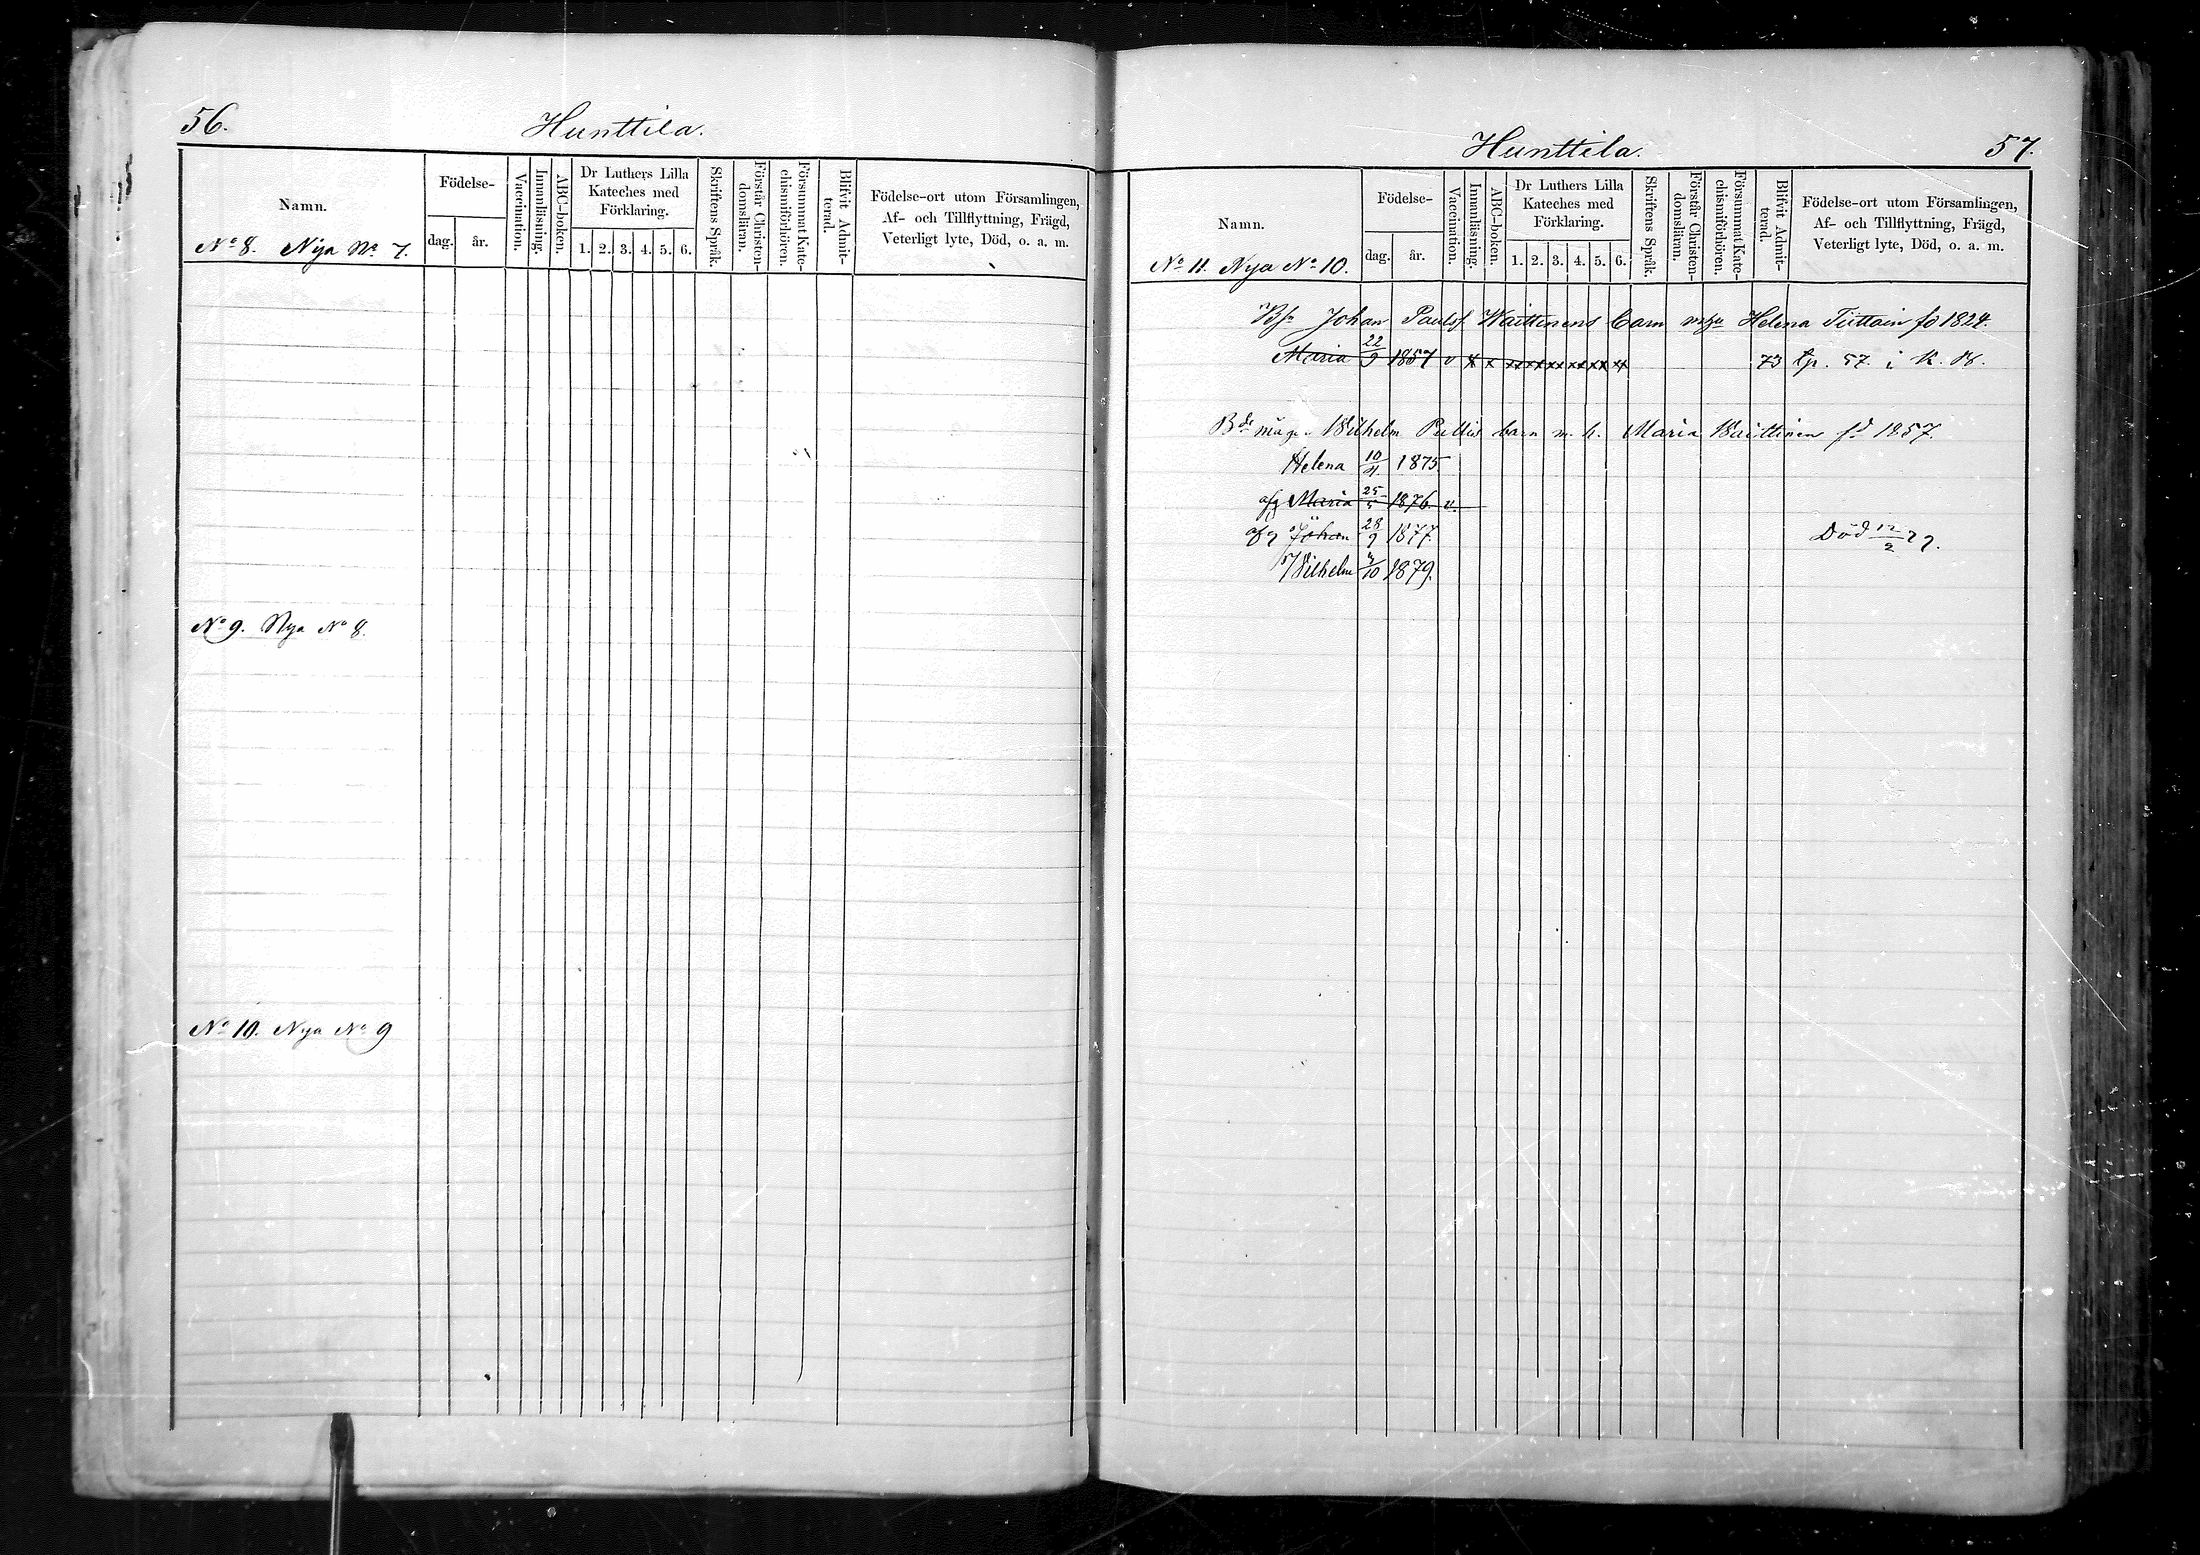 56.
Hunttila.
Namn.
Födelse-
dag.
år.
Vaccination.
Innanläsning.
ABC-boken.
Dr Luthers Lilla
Kateches med
Förklaring.
1. 2. 3. 4. 5. 6.
Skriftens Språk.
Förstår Christen-
domsläran.
Försummat Kate-
chismiförhören.
Blifvit Admit-
terad.
Födelse-ort utom Församlingen,
Af- och Tillflyttning, Frägd,
Veterligt lyte, Död, o. a. m.
No 8. Nya No 7.
No 9. Nya No 8.
No 10. Nya No 9
Hunttila.
57.
Namn.
Födelse-
dag.
år.
Vaccination.
Innanläsning.
ABC-boken.
Dr Luthers Lilla
Kateches med
Förklaring.
1. 2. 3. 4. 5. 6.
Skriftens Språk.
Förstår Christen-
domsläran.
Försummat Kate-
chismiförhören.
Blifvit Admit-
terad.
Födelse-ort utom Församlingen,
Af- och Tillflyttning, Frägd,
Veterligt lyte, Död, o. a. m.
No 11. Nya No 10.
Johan Paulss. Waittinens barn Helena fd 1824.
Maria 22/9 1857 v x x xx xx xx xx xx xx 73 57. i K. B.
Wilhelm barn m. h. Maria Waittinen fd 1857.
Helena 10/4. 1875
afg Maria 25/5 1876. v.
afg Johan 28/9 1877. Död 12/2 79.
Wilhelm 4/10 1879.